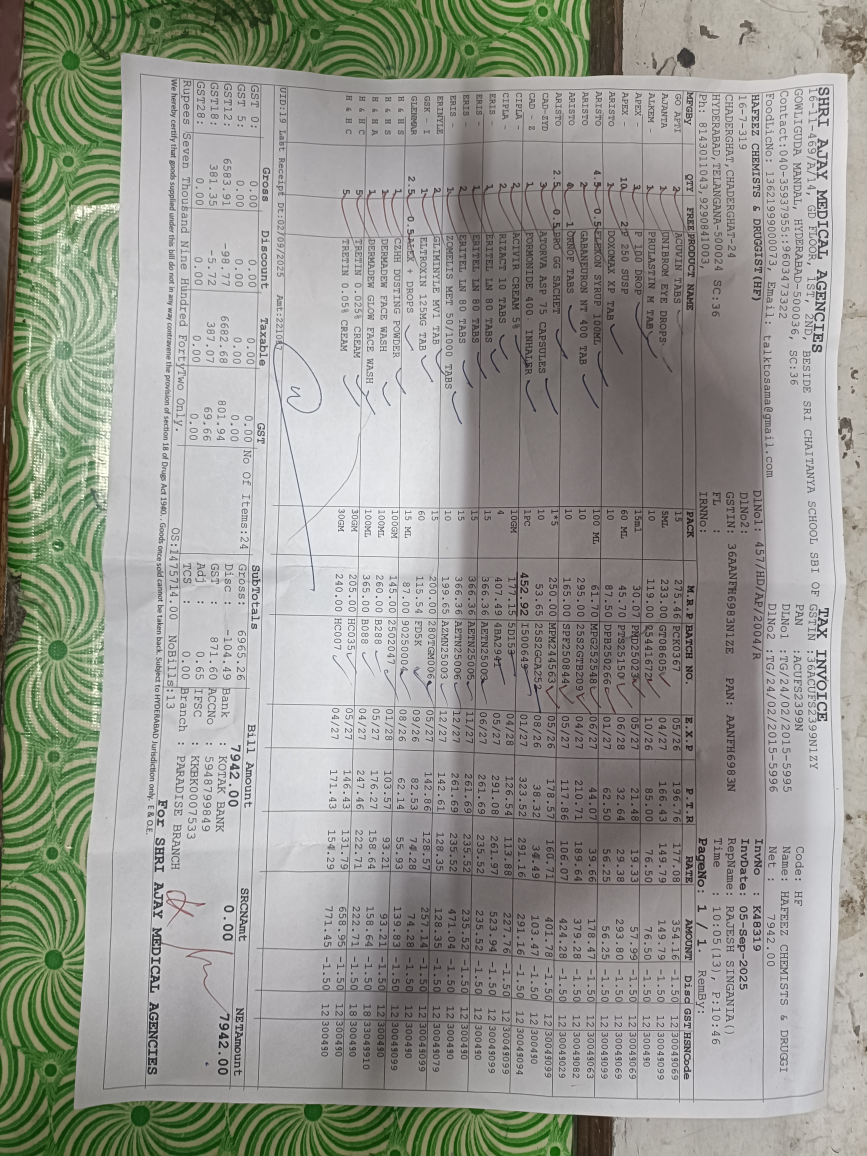 SHRI AJAY MEDICAL AGENCIES
16-11-469/A/14, GD FLOOR, 1ST, 2ND, BESIDE SRI CHAITANYA SCHOOL SBI OF
GOWLIGUDA MANDAL, HYDERABAD-500036, SC:36
Contact:040-35937955::9603473322
FoodlicNo: 13621999000073, Email: talktosama@gmail.com
TAX INVOICE
GSTIN :36ACUFS2399N1ZY
PAN :ACUFS2399N
DLNo1 :TG/24/02/2015-5995
DLNo2 :TG/24/02/2015-5996
Code: HF
Name: HAFEEZ CHEMISTS & DRUGGI
Net : 7942.00
HAFEEZ CHEMISTS & DRUGGIST(HF)
16-7-319
CHADERGHAT,CHADERGHAT-24
HYDERABAD,TELANGANA-500024 SC:36
Ph: 8143011043,9290841003,
DlNo1: 457/HD/AP/2004/R
DlNo2:
GSTIN: 36AANFH6983N1ZE PAN: AANFH6983N
FL :
IRNNo:
InvNo : K48319
InvDate: 05-Sep-2025
RepName: RAJESH SINGANIA()
Time : 10:05(13), P:10:46
PageNo: 1 / 1. RemBy:
MFGBy QTY FREE PRODUCT NAME PACK M.R.P BATCH NO. E.X.P P.T.R RATE AMOUNT Disc GST HSNCode
GO APPI 2 ACUVIN TABS 15 275.46 PCE0367 05/26 196.76 177.08 354.16 -1.50 12 30049069
AJANTA 1 UNIBROM EYE DROPS 5ML 233.00 GT0860 04/27 166.43 149.79 149.79 -1.50 12 30049099
ALKEM 1 PROLASTIN M TAB 10 119.00 10/26 85.00 76.50 76.50 -1.50 12 300490
APEX - 3 P 100 DROP 15ml 30.07 PMD25023 05/27 21.48 19.33 57.99 -1.50 12 30049069
APEX - 10 2 P 250 SUSP 60 ML 45.70 06/28 32.64 29.38 293.80 -1.50 12 30049069
ARISTO 1 DOXOMAX XP TAB 10 87.50 DPB250266 01/27 62.50 56.25 56.25 -1.50 12 30049099
ARISTO 4.5 0.5 SYRUP 100ML 100 ML 61.70 MPG252548 06/27 44.07 39.66 178.47 -1.50 12 30049063
ARISTO 2 GABANEURON NT 400 TAB 10 295.00 25S2GTB209 04/27 210.71 189.64 379.28 -1.50 12 30049082
ARISTO 4 1 TABS 10 165.00 SPF250844 05/27 117.86 106.07 424.28 -1.50 12 30049029
ARISTO 2.5 0.5 GG SACHET 1*5 250.00 MPW214563 05/26 178.57 160.71 401.78 -1.50 12 30049099
CAD-ZYD 3 ATORVA ASP 75 CAPSULES 10 53.65 25S2GCA252 08/26 38.32 34.49 103.47 -1.50 12 300490
CIPLA - 1 FORMONIDE 400 INHALER 1PC 452.92 I500649 01/27 323.52 291.16 291.16 -1.50 12 30049094
CIPLA - 2 ACIVIR CREAM 5% 10GM 177.15 5D153 04/28 126.54 113.88 227.76 -1.50 12 30049099
ERIS - 2 10 TABS 4 407.49 4BA2941 05/27 291.08 261.97 523.94 -1.50 12 30049099
ERIS - 1 ERITEL LN 80 TABS 15 366.36 AETN25003 06/27 261.69 235.52 235.52 -1.50 12 300490
ERIS - 1 ERITEL LN 80 TABS 15 366.36 AETN25005 11/27 261.69 235.52 235.52 -1.50 12 300490
ERIS - 2 ERITEL LN 80 TABS 15 366.36 AETN25006 12/27 261.69 235.52 471.04 -1.50 12 300490
ERIS - 1 ZOMELIS MET 50/1000 TABS 10 199.65 A2MN25003 12/27 142.61 128.35 128.35 -1.50 12 300490
ERINYLE 2 GLIMINYLE MV1 TAB 15 200.00 05/27 142.86 128.57 257.14 -1.50 12 30049079
GSK - I 1 ELTROXIN 125MG TAB 60 115.54 FD5K 09/26 82.53 74.28 74.28 -1.50 12 30049099
GLENMAR 2.5 0.5 ALEX + DROPS 15 ML 87.00 90250004 08/26 62.14 55.93 139.83 -1.50 12 30049099
H & H S 1 CZHH DUSTING POWDER 100GM 145.00 2502047 01/28 103.57 93.21 93.21 -1.50 12 300490
H & H S 1 DERMADEW FACE WASH 100ML 260.00 B288 05/27 176.27 158.64 158.64 -1.50 18 33049910
H & H A 1 DERMADEW GLOW FACE WASH 100ML 365.00 B088 04/27 247.46 222.71 222.71 -1.50 18 300490
H & H C 5 TRETIN 0.025% CREAM 30GM 205.00 HC035 05/27 146.43 131.79 658.95 -1.50 12 300490
H & H C 5 TRETIN 0.05% CREAM 30GM 240.00 HC007 04/27 171.43 154.29 771.45 -1.50 12 300490
UID:19 Last Receipt Dt:02/09/2025 Amt:
Gross Discount Taxable GST
GST 0: 0.00 0.00 0.00 0.00
GST 5: 0.00 0.00 0.00 0.00
GST12: 6583.91 -98.77 6682.68 801.94
GST18: 381.35 -5.72 387.07 69.66
GST28: 0.00 0.00 0.00 0.00
No Of Items:24
SubTotals
Gross: 6965.26
Disc : -104.49
GST : 871.60
Adj : 0.65
TCS : 0.00
Bill Amount
7942.00
Bank : KOTAK BANK
ACCNo : 5948799849
IFSC : KKBK0007533
Branch : PARADISE BRANCH
SRCNAmt
0.00
NETAmount
7942.00
Rupees Seven Thousand Nine Hundred FortyTwo Only.
OS:1475714.00 NoBills:13
We hereby certify that goods supplied under this bill do not in any way contravene the provision of section 18 of Drugs Act 1940. . Goods once sold cannot be taken back. Subject to HYDERABAD Jurisdiction only. E & O.E.
For SHRI AJAY MEDICAL AGENCIES